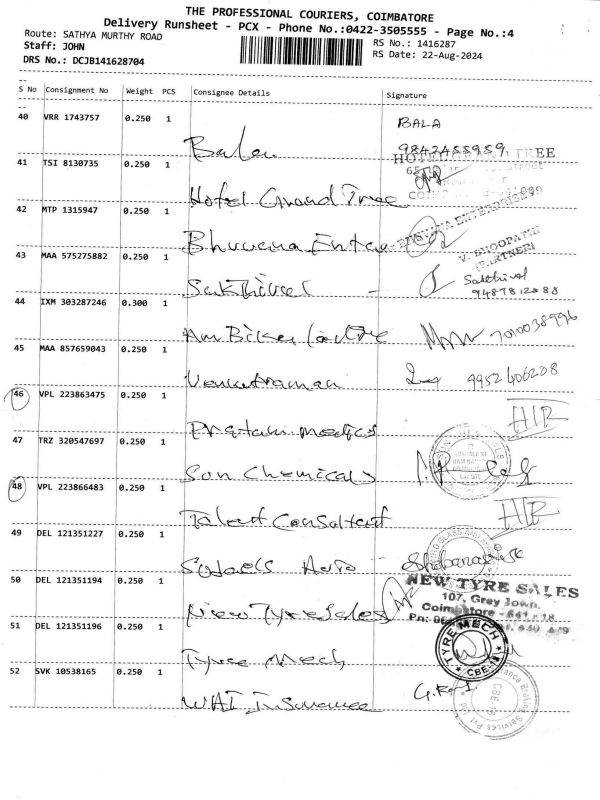 THE PROFESSIONAL COURIERS, COIMBATORE
Delivery Runsheet - PCX - Phone No.:0422-3505555 - Page No.:4
Route: SATHYA MURTHY ROAD
RS No.: 1416287
Staff: JOHN
RS Date: 22-Aug-2024
DRS No.: DCJB141628704
S No Consignment No Weight PCS Consignee Details Signature
40 VRR 1743757 0.250 1 BALA
9842455959
41 TSI 8130735 0.250 1 Hotel Grand Tree
42 MTP 1315947 0.250 1 Bhuvana
43 MAA 575275882 0.250 1 Sakthivel Sakthivel
V. BHOOPATHI
(PARTNER)
44 IXM 303287246 0.300 1
45 MAA 857659043 0.250 1 Venkatraman 9952406208
46 VPL 223863475 0.250 1
47 TRZ 320547697 0.250 1 Son Chemicals
48 VPL 223866483 0.250 1 Talent Consultant
49 DEL 121351227 0.250 1 Auto
50 DEL 121351194 0.250 1 New Tyre Sales
NEW TYRE SALES
107, Grey Town,
51 DEL 121351196 0.250 1 Tyre Mech
TYRE MECH
CBE-18
52 SVK 10538165 0.250 1 Insurance